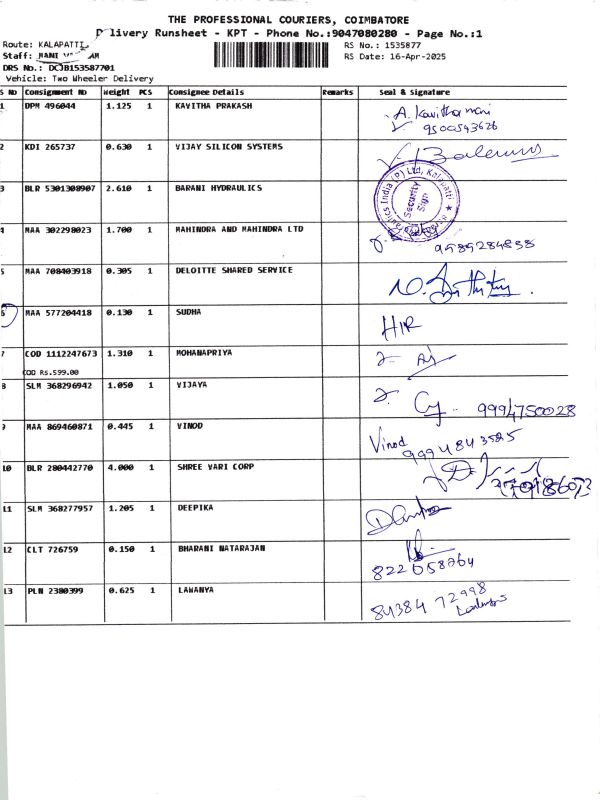 THE PROFESSIONAL COURIERS, COIMBATORE
Delivery Runsheet - KPT - Phone No.:9047080280 - Page No.:1
Route: KALAPATTI
RS No.: 1535877
Staff: MANI
RS Date: 16-Apr-2025
DRS No.: DCJB153587701
Vehicle: Two Wheeler Delivery
S No Consignment No Weight PCS Consignee Details Remarks Seal & Signature
1 DPM 496044 1.125 1 KAVITHA PRAKASH
A. Kavithamani
9500543626
2 KDI 265737 0.630 1 VIJAY SILICON SYSTEMS
3 BLR 5301308907 2.610 1 BARANI HYDRAULICS
India (P) Ltd, Kalapatti
Security
Sign
4 MAA 302298023 1.700 1 MAHINDRA AND MAHINDRA LTD
9989284838
5 MAA 708403918 0.305 1 DELOITTE SHARED SERVICE
6 MAA 577204418 0.130 1 SUDHA
H/R
7 COD 1112247673 1.310 1 MOHANAPRIYA
COD Rs.599.00
8 SLM 368296942 1.050 1 VIJAYA
9994750028
9 MAA 869460871 0.445 1 VINOD
Vinod 9994843585
10 BLR 280442770 4.000 1 SHREE VARI CORP
11 SLM 368277957 1.205 1 DEEPIKA
12 CLT 726759 0.150 1 BHARANI NATARAJAN
13 PLN 2380399 0.625 1 LAWANYA
84384 72998